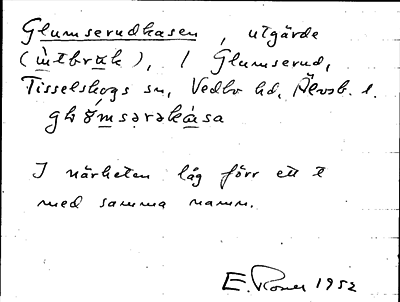 Glumserudkasen, utgärde
(ùtbrak), 1 Glumserud,
Tisselskogs sn, Vedbo hd, Älvsb. l.
I närheten låg förr ett t
med samma namn.
E. 1952